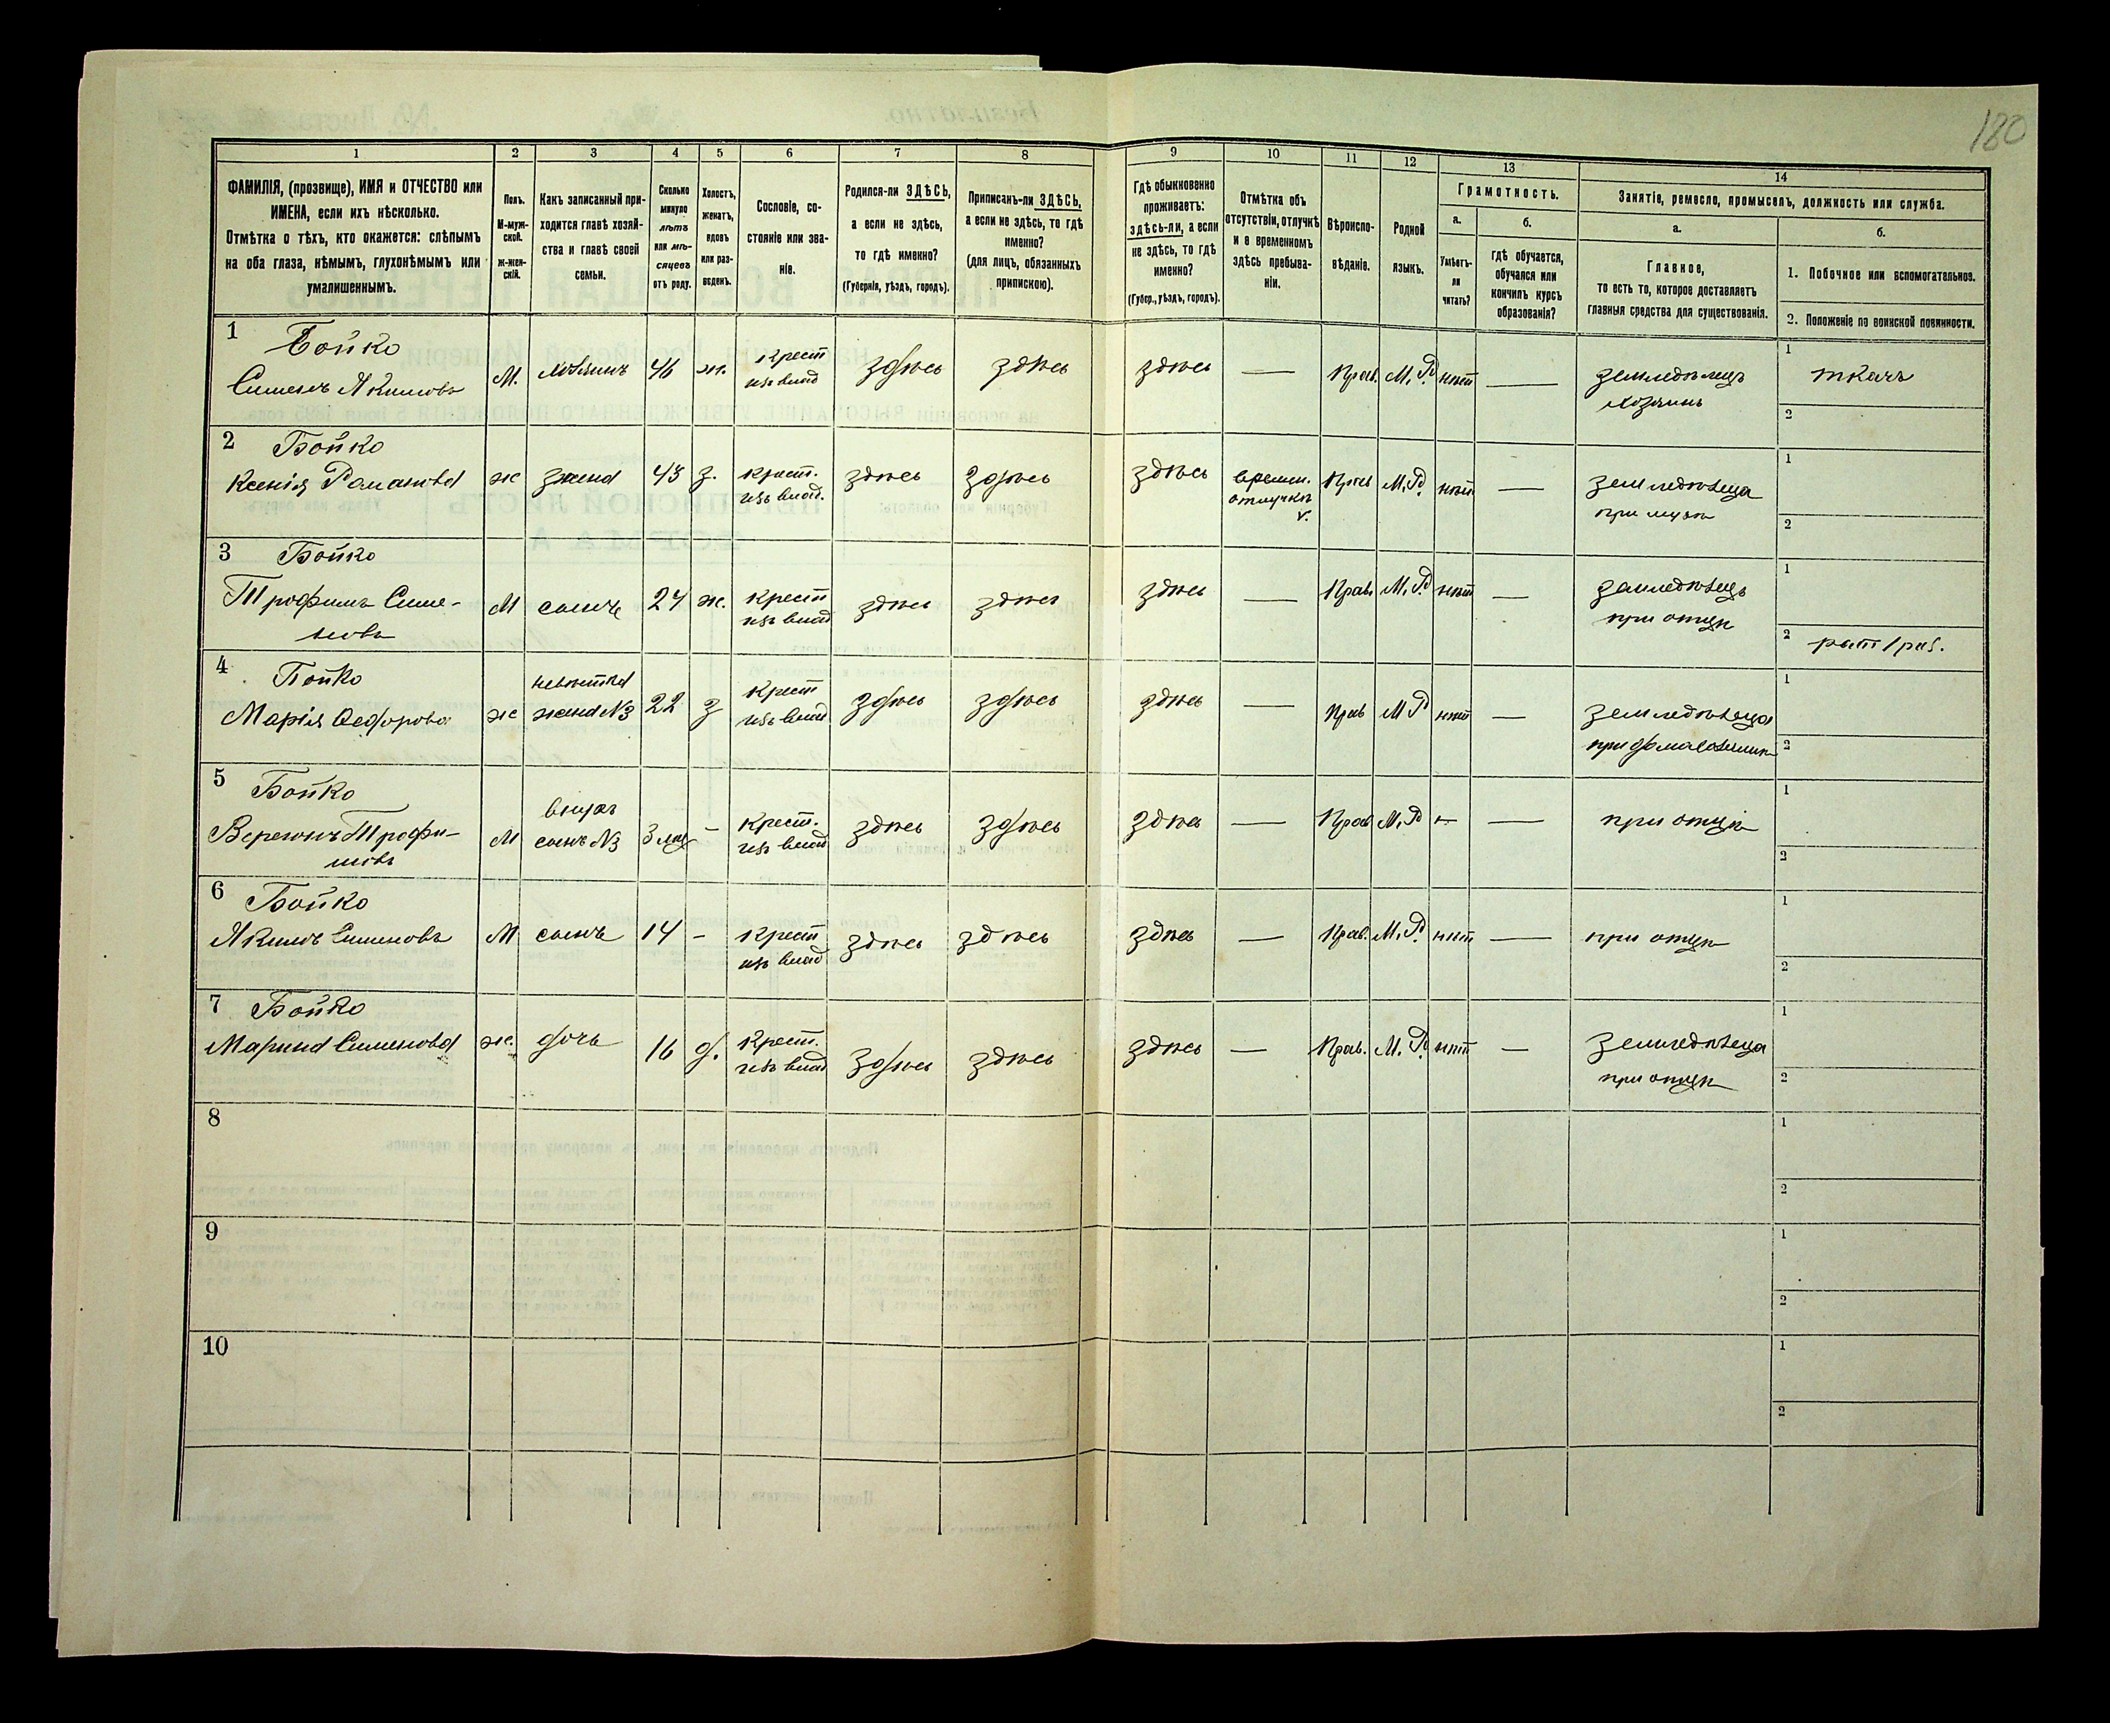 180
1 2 3 4 5 6 7 8 9 10 11 12 13 14
ФАМИЛІЯ, (прозвище), ИМЯ и ОТЧЕСТВО или
ИМЕНА, если ихъ нѣсколько.
Отмѣтка о тѣхъ, кто окажется: слѣпымъ
на оба глаза, нѣмымъ, глухонѣмымъ или
умалишеннымъ.
Полъ.
М-муж-
ской.
Ж-жен-
скій.
Какъ записанный при-
ходится главѣ хозяй-
ства и главѣ своей
семьи.
Сколько
минуло
лѣтъ
или мѣ-
сяцевъ
отъ роду.
Холостъ,
женатъ,
вдовъ
или раз-
веденъ.
Сословіе, со-
стояніе или зва-
ніе.
Родился-ли ЗДѢСЬ,
а если не здѣсь,
то гдѣ именно?
(Губернія, уѣздъ, городъ).
Приписанъ-ли ЗДѢСЬ,
а если не здѣсь, то гдѣ
именно?
(для лицъ, обязанныхъ
припискою).
Гдѣ обыкновенно
проживаетъ:
здѣсь-ли, а если
не здѣсь, то гдѣ
именно?
(Губер., уѣздъ, городъ).
Отмѣтка объ
отсутствіи, отлучкѣ
и о временномъ
здѣсь пребыва-
ніи.
Вѣроиспо-
вѣданіе.
Родной
языкъ.
Грамотность.
а.
Умѣетъ-
ли
читать?
б.
гдѣ обучается,
обучался или
кончилъ курсъ
образованія?
Занятіе, ремесло, промыселъ, должность или служба.
а.
Главное,
то есть то, которое доставляетъ
главныя средства для существованія.
б.
1. Побочное или вспомогательное.
2. Положеніе по воинской повинности.
1 Бойко
Сименъ Якимовъ М. хозяинъ 46 ж. крест изъ влад здѣсь здѣсь здѣсь — Прав. М. Р. нѣт — земледѣлецъ хозяинъ 1 ткачъ
2
2 Бойко
Ксенія Романова ж жена 43 з. крест. изъ влад. здѣсь здѣсь здѣсь времен. отлучкѣ v. Прав М. Р. нѣт земледѣлица при мужѣ 1
2
3 Бойко
Трофимъ Симе-
новъ М сынъ 24 ж. крест изъ влад здѣсь здѣсь здѣсь — Прав. М. Р. нѣт — земледѣлецъ при отцѣ 1
2 рат/раз.
4 Бойко
Марія Ѳедорова ж невѣстка жена №3 22 з крест изъ влад здѣсь здѣсь здѣсь — Прав М Р нѣт — земледѣлица 1
2
5 Бойко
Трофи-
мовъ М внукъ сынъ №3 3 мѣс – крест. изъ влад здѣсь здѣсь здѣсь — Прав М. Р — — при отцѣ 1
2
6 Бойко
Якимъ Сименовъ М сынъ 14 – крест изъ влад здѣсь здѣсь здѣсь — Прав. М. Р. нѣт — при отцѣ 1
2
7 Бойко
Марина Сименова ж. дочь 16 д. крест. изъ влад здѣсь здѣсь здѣсь — Прав. М. Р. нѣт — земледѣлица при отцѣ 1
2
8 1
2
9 1
2
10 1
2